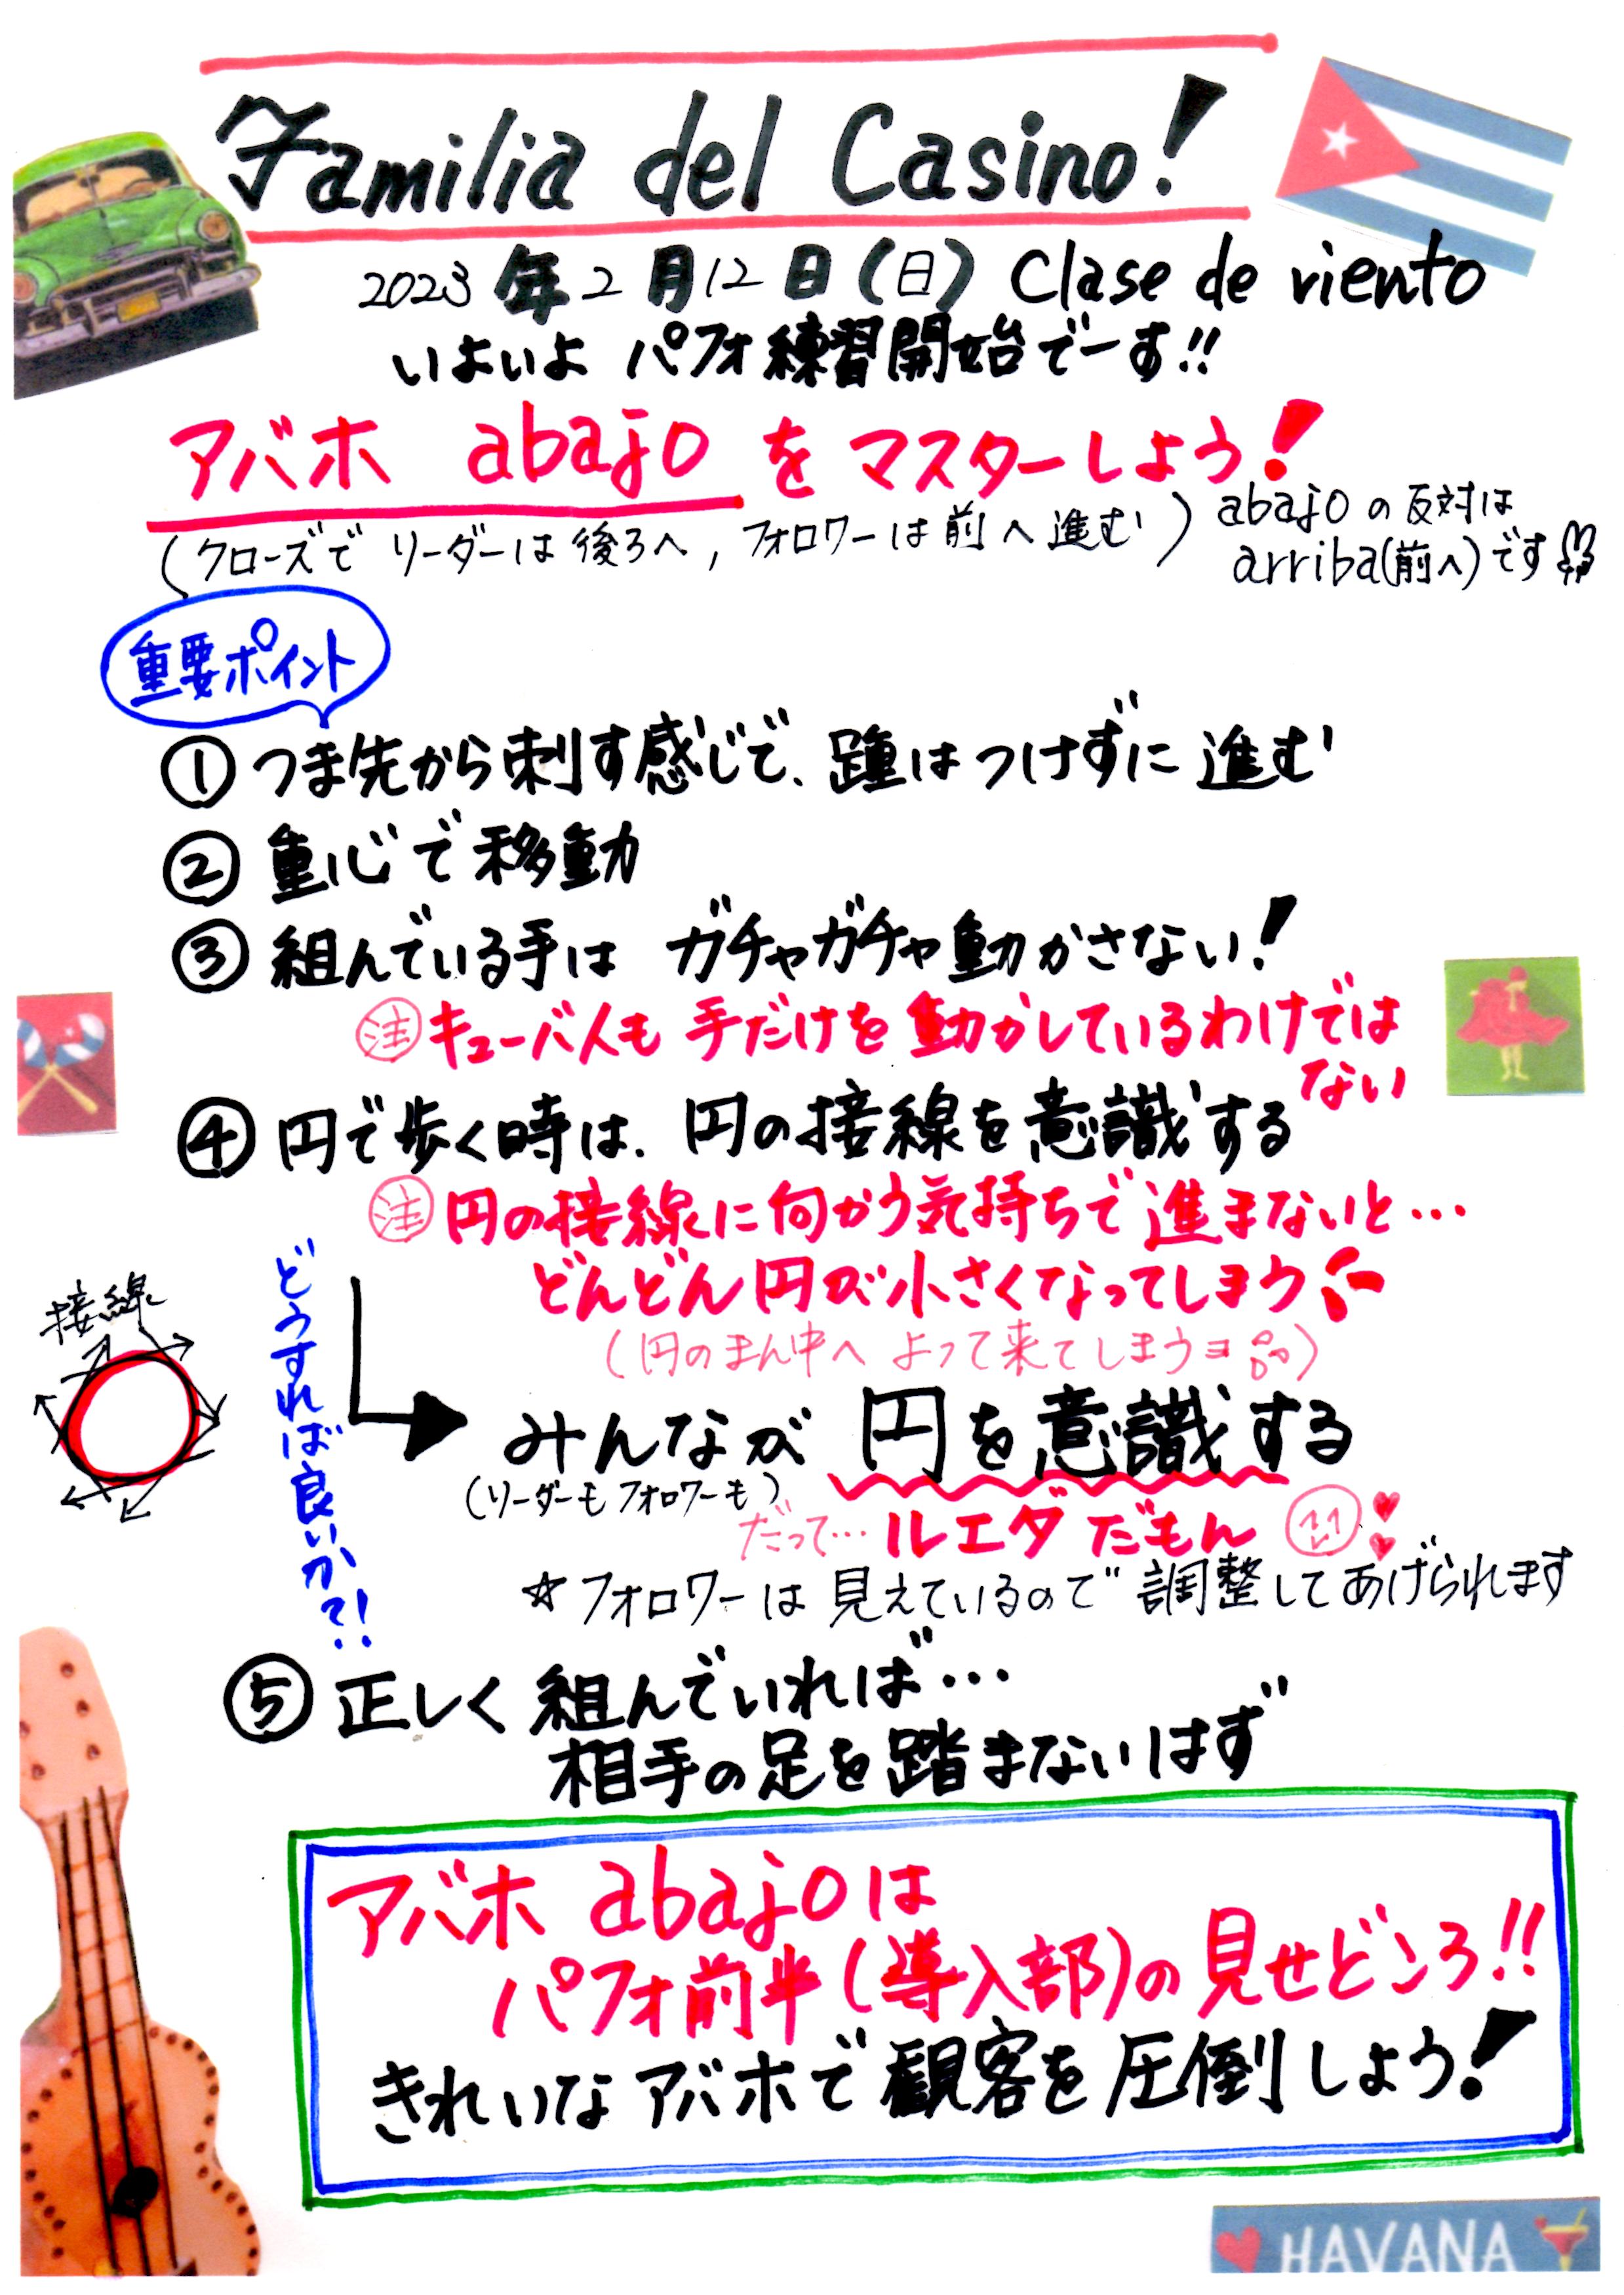 Familia del Casino!
2023年2月12日(日) Clase de viento
いよいよ パフォ練習開始でーす!!
アバホ abajo をマスターしよう!
(クローズで リーダーは後ろへ, フォロワーは前へ進む)
abajoの反対は
arriba(前へ)です
重要ポイント
① つま先から刺す感じで、踵はつけずに進む
② 重心で移動
③ 組んでいる手は ガチャガチャ動かさない!
注 キューバ人も 手だけを動かしているわけでは
ない
④ 円で歩く時は、円の接線を意識する
注 円の接線に向かう気持ちで進まないと…
どんどん円が小さくなってしまう
(円のまん中へ よって来てしまうヨ)
接線
どうすれば良いか?!
みんなが 円を意識する
(リーダーもフォロワーも)
だって… ルエダだもん
☆フォロワーは見えているので調整してあげられます
⑤ 正しく組んでいれば…
相手の足を踏まないはず
アバホ abajoは
パフォ前半(導入部)の見せどころ!!
きれいなアバホで観客を圧倒しよう!
HAVANA